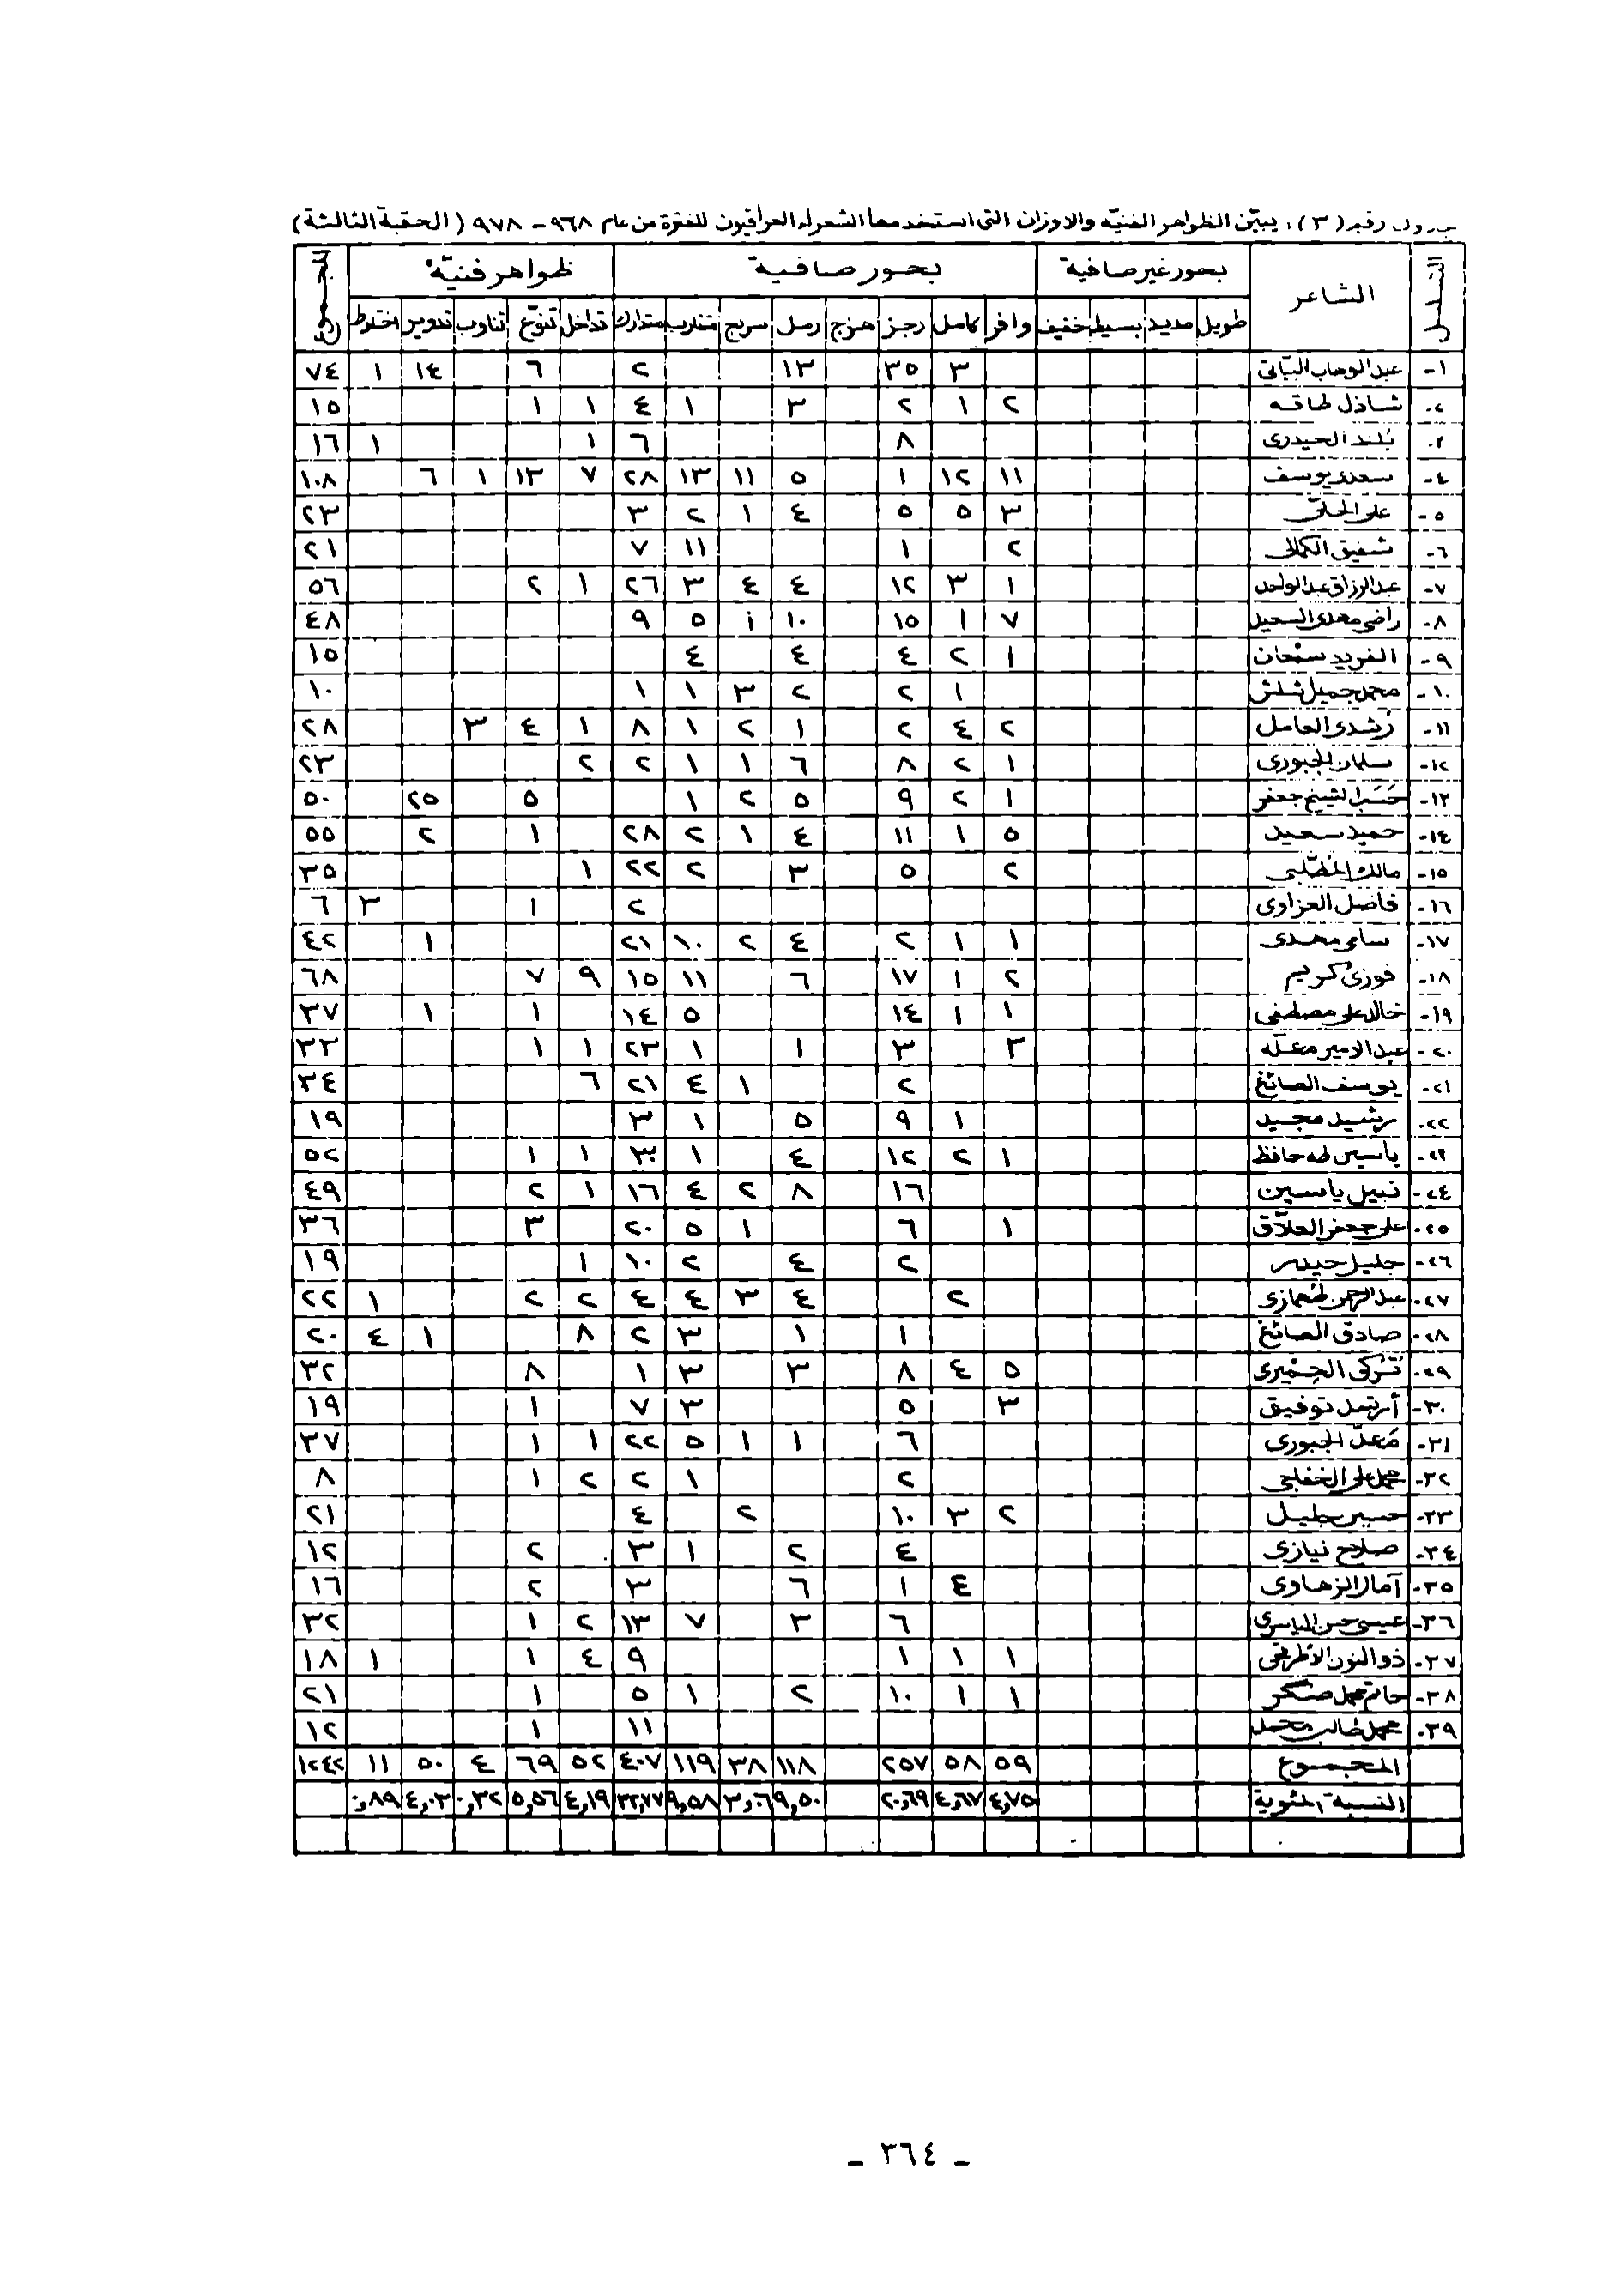 جدول رقم (٣) : يبين الظواهر الفنية والاوزان التى استخدمها الشعراء العراقيون للفترة من عام ٩٦٨ - ٩٧٨ (الحقبة الثالثة)
التسلسل الشاعر بحور غير صافية بحور صافية ظواهر فنية المجموع
طويل مديد بسيط خفيف وافر كامل رجز هزج رمل سريع متقارب متدارك تداخل تنوع تناوب تدوير اختلاط
١- عبد الوهاب البياتى ٣ ٣٥ ١٣ ٢ ٦ ١٤ ١ ٧٤
٢- شاذل طاقه ٢ ١ ٢ ٣ ١ ٤ ١ ١ ١٥
٣- بلند الحيدرى ٨ ٦ ١ ١ ١٦
٤- سعدى يوسف ١١ ١٢ ١ ٥ ١١ ١٣ ٢٨ ٧ ١٣ ١ ٦ ١٠٨
٥- على الحلى ٣ ٥ ٥ ٤ ١ ٢ ٣ ٢٣
٦- شفيق الكمالى ٢ ١ ١١ ٧ ٢١
٧- عبد الرزاق عبد الواحد ١ ٣ ١٢ ٤ ٤ ٣ ٢٦ ١ ٢ ٥٦
٨- راضى مهدى السعيد ٧ ١ ١٥ ١٠ ١ ٥ ٩ ٤٨
٩- الفريد سمعان ١ ٢ ٤ ٤ ٤ ١٥
١٠- محمد جميل شلش ١ ٢ ٢ ٣ ١ ١ ١٠
١١- رشدى العامل ٢ ٤ ٢ ١ ٢ ١ ٨ ١ ٤ ٣ ٢٨
١٢- سلمان الجبورى ١ ٢ ٨ ٦ ١ ١ ٢ ٢ ٢٣
١٣- حسب الشيخ جعفر ١ ٢ ٩ ٥ ٢ ١ ٥ ٢٥ ٥٠
١٤- حميد سعيد ٥ ١ ١١ ٤ ١ ٢ ٢٨ ١ ٢ ٥٥
١٥- مالك المطلبى ٢ ٥ ٣ ٢ ٢٢ ١ ٣٥
١٦- فاضل العزاوى ٢ ١ ٣ ٦
١٧- سامى مهدى ١ ١ ٢ ٤ ٢ ١٠ ٢١ ١ ٤٢
١٨- فوزى كريم ٢ ١ ١٧ ٦ ١١ ١٥ ٩ ٧ ٦٨
١٩- خالد على مصطفى ١ ١ ١٤ ٥ ١٤ ١ ١ ٣٧
٢٠- عبد الامير معله ٣ ٣ ١ ١ ٢٣ ١ ١ ٣٣
٢١- يوسف الصائغ ٢ ١ ٤ ٢١ ٦ ٣٤
٢٢- رشيد مجيد ١ ٩ ٥ ١ ٣ ١٩
٢٣- ياسين طه حافظ ١ ٢ ١٢ ٤ ١ ٣٠ ١ ١ ٥٢
٢٤- نبيل ياسين ١٦ ٨ ٢ ٤ ١٦ ١ ٢ ٤٩
٢٥- على جعفر العلاق ١ ٦ ١ ٥ ٢٠ ٣ ٣٦
٢٦- جليل حيدر ٢ ٤ ٢ ١٠ ١ ١٩
٢٧- عبد الرحمن طهمازى ٢ ٤ ٣ ٤ ٤ ٢ ٢ ١ ٢٢
٢٨- صادق الصائغ ١ ١ ٣ ٢ ٨ ١ ٤ ٢٠
٢٩- تركى الحميرى ٥ ٤ ٨ ٣ ٣ ١ ٨ ٣٢
٣٠- أرشد توفيق ٣ ٥ ٣ ٧ ١ ١٩
٣١- معد الجبورى ٦ ١ ١ ٥ ٢٢ ١ ١ ٣٧
٣٢- محمد على الخفاجى ٢ ١ ٢ ٢ ١ ٨
٣٣- حسين جليل ٢ ٣ ١٠ ٢ ٤ ٢١
٣٤- صلاح نيازى ٤ ٢ ١ ٣ ٢ ١٢
٣٥- آمال الزهاوى ٤ ١ ٦ ٣ ٢ ١٦
٣٦- عيسى حسن الياسرى ٦ ٣ ٧ ١٣ ٢ ١ ٣٢
٣٧- ذو النون الاطرقجى ١ ١ ١ ٩ ٤ ١ ١ ١٨
٣٨- حاتم محمد صكر ١ ١ ١٠ ٢ ١ ٥ ١ ٢١
٣٩- محمد طالب محمد ١١ ١ ١٢
المجموع ٥٩ ٥٨ ٢٥٧ ١١٨ ٣٨ ١١٩ ٤٠٧ ٥٢ ٦٩ ٤ ٥٠ ١١ ١٢٤٢
النسبة المئوية ٤,٧٥ ٤,٦٧ ٢٠,٦٩ ٩,٥٠ ٣,٠٦ ٩,٥٨ ٣٢,٧٧ ٤,١٩ ٥,٥٦ ٠,٣٢ ٤,٠٣ ٠,٨٩
- ٣٦٤ -